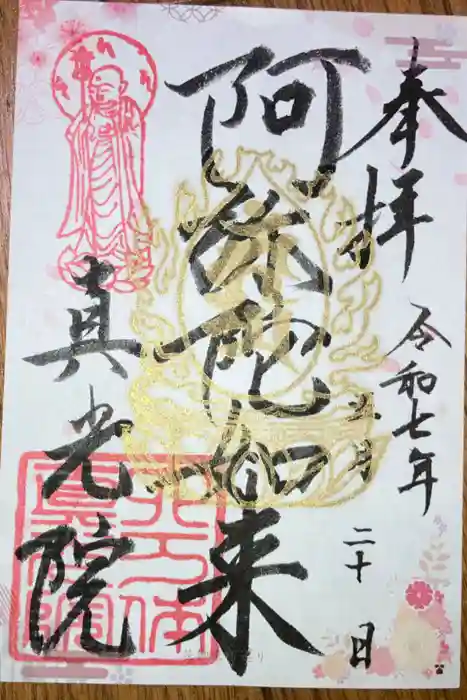 奉拝
令和七年
五月
二十日
阿弥陀如来
真光院